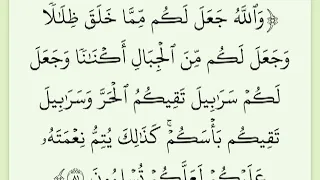 ﴿وَٱللَّهُ جَعَلَ لَكُم مِّمَّا خَلَقَ ظِلَـٰلًا
وَجَعَلَ لَكُم مِّنَ ٱلْجِبَالِ أَكْنَـٰنًا وَجَعَلَ
لَكُمْ سَرَٰبِيلَ تَقِيكُمُ ٱلْحَرَّ وَسَرَٰبِيلَ
تَقِيكُم بَأْسَكُمْ ۚ كَذَٰلِكَ يُتِمُّ نِعْمَتَهُۥ
عَلَيْكُمْ لَعَلَّكُمْ تُسْلِمُونَ ﴿٨١﴾